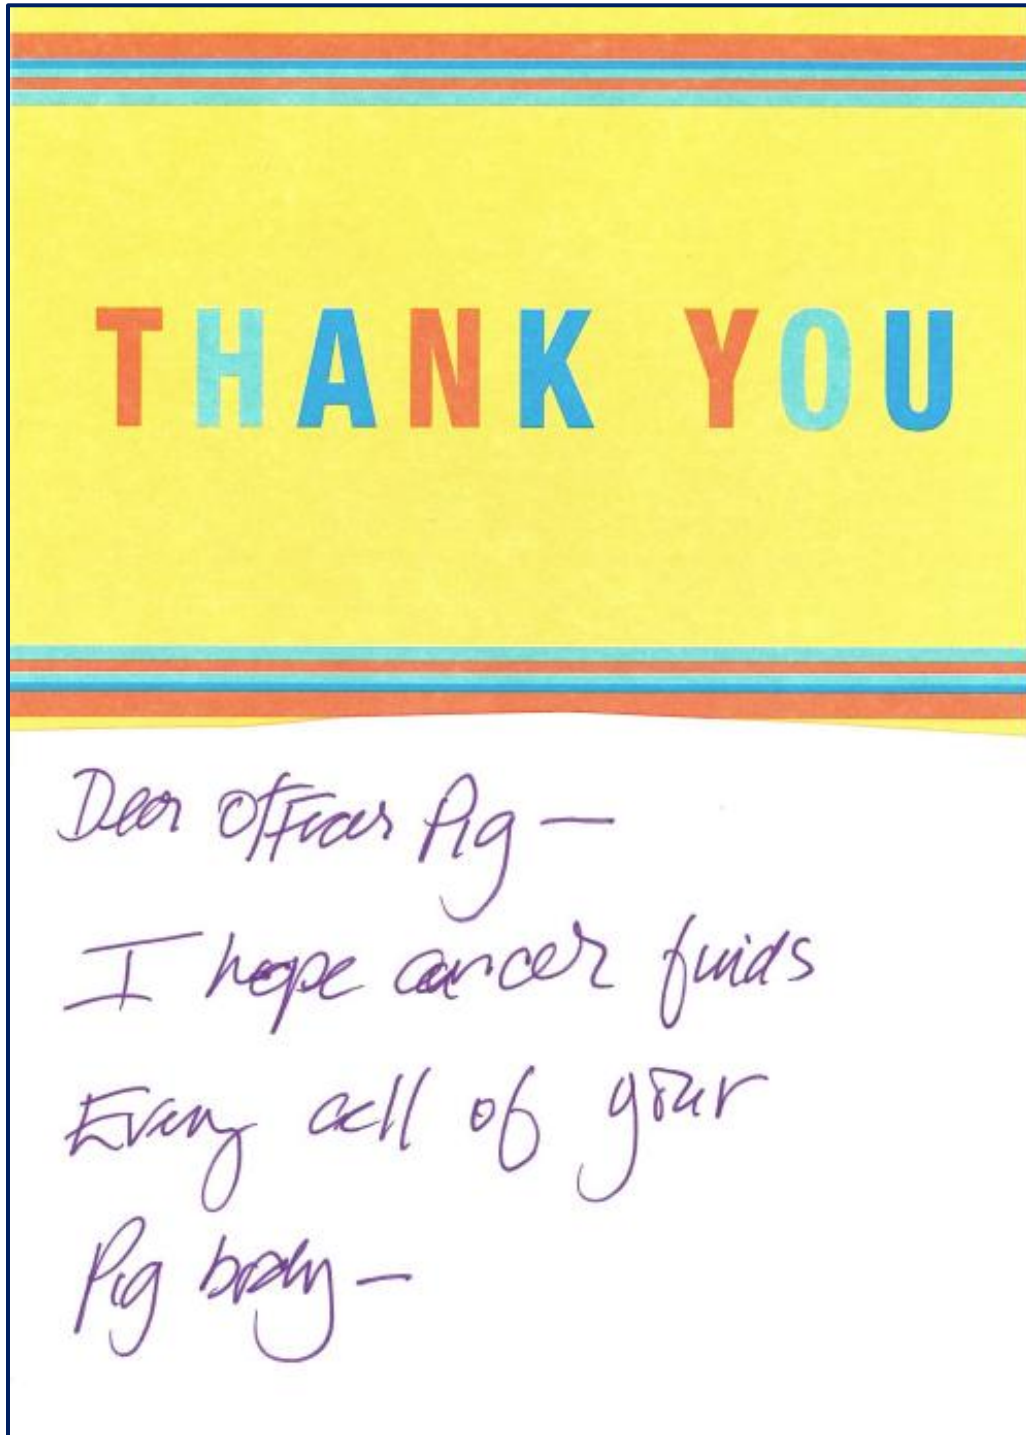 THANK YOU
Dear Officer Pig —
I hope cancer finds
Every cell of your
Pig body —